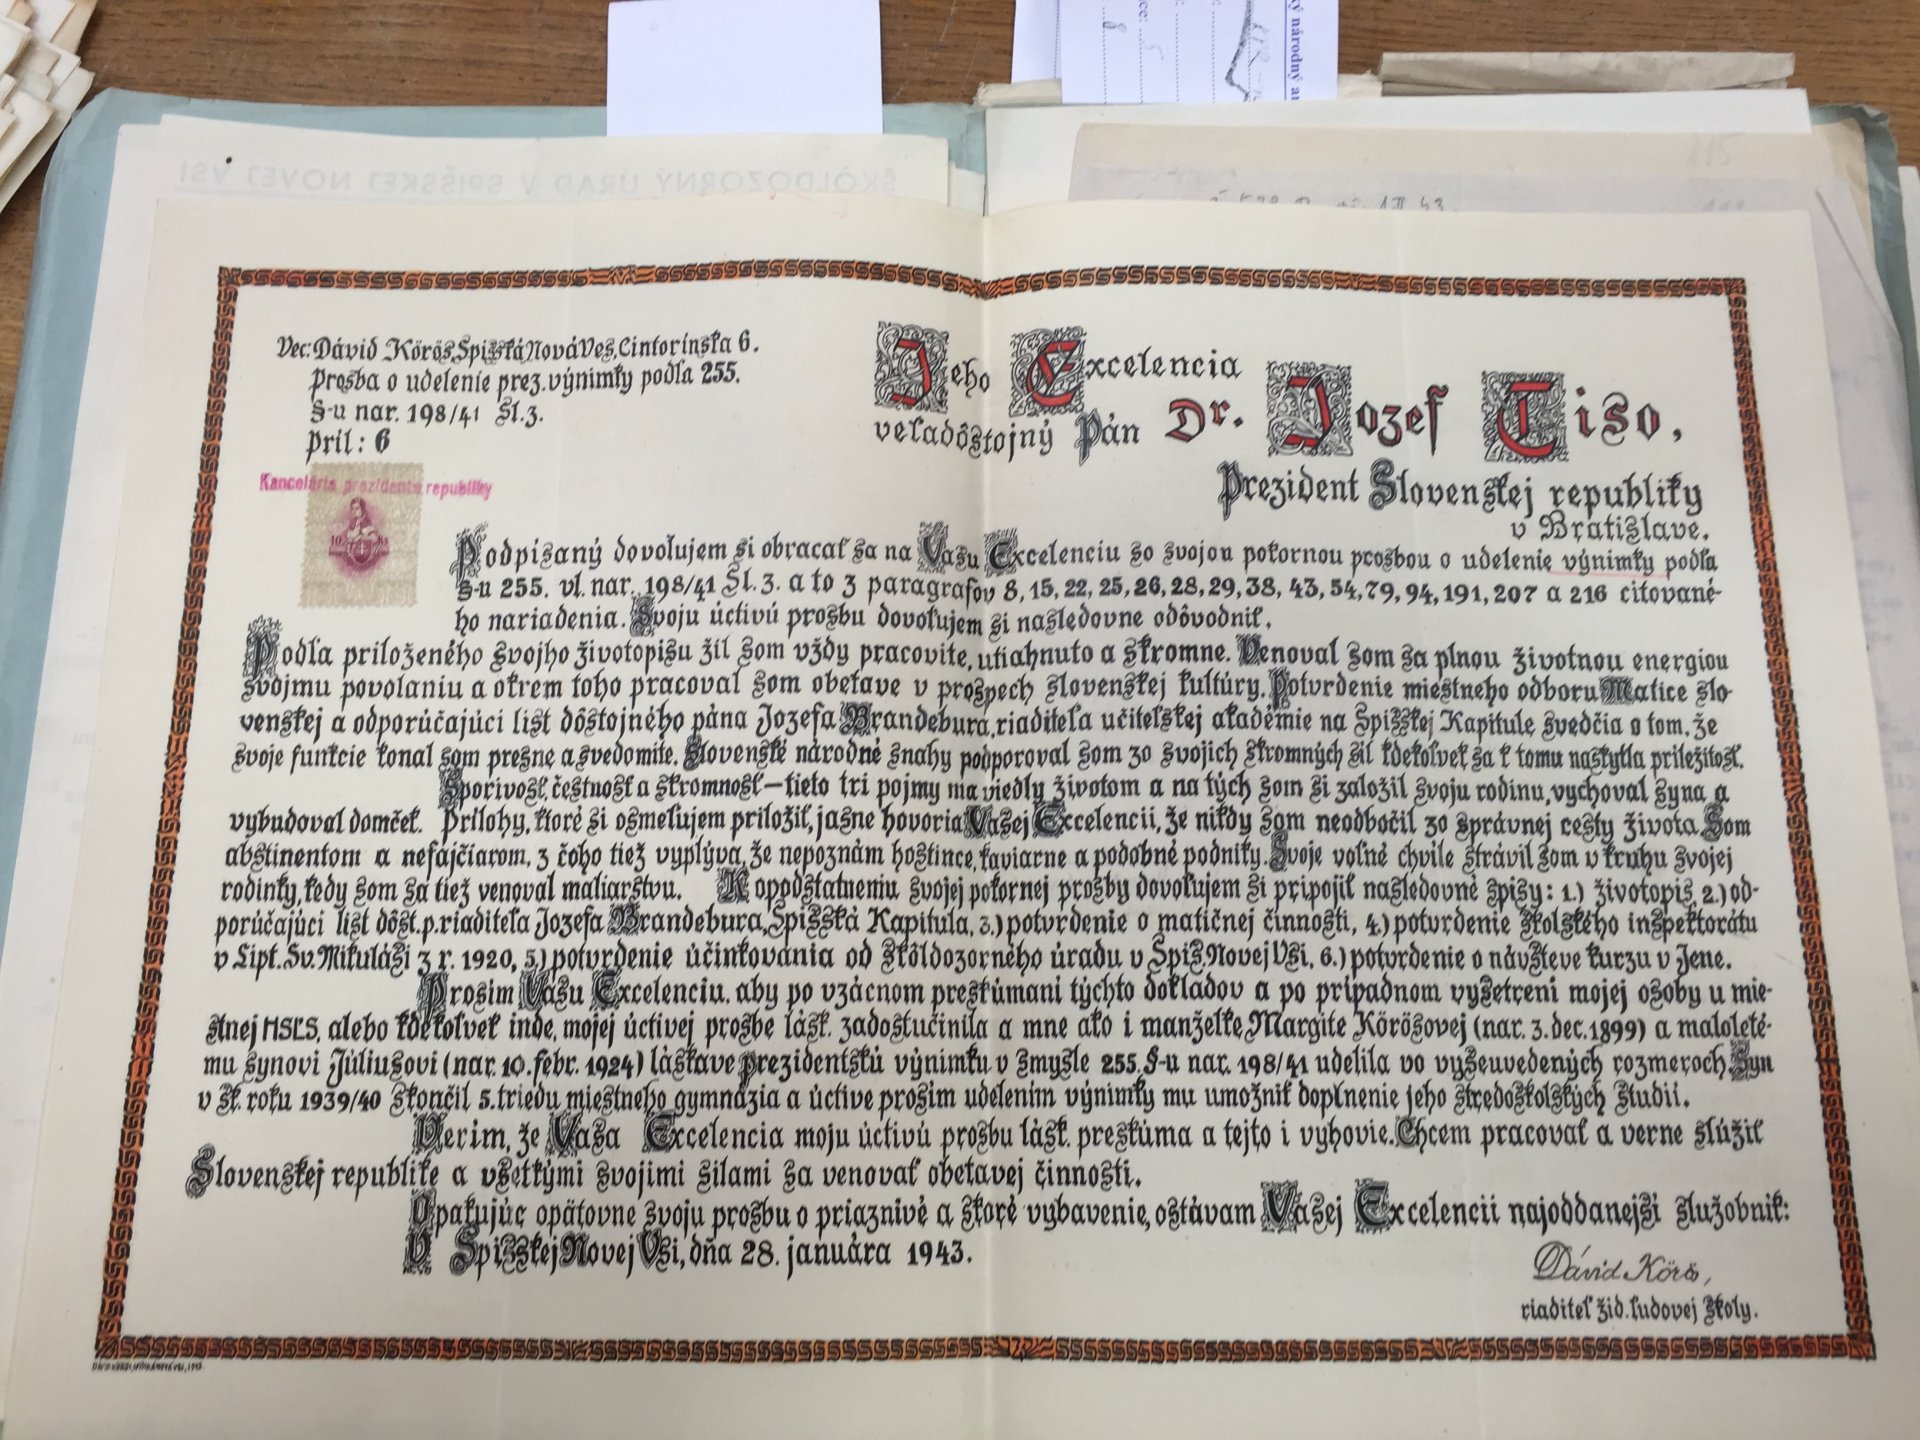 ŠKÔLDOZORNÝ ÚRAD V SPIŠSKEJ NOVEJ VSI
ký národný
Vec: Dávid Körös, Spišská Nová Ves, Cintorínska 6.
Prosba o udelenie prez. výnimky podľa 255.
§-u nar. 198/41 Sl. z.
Príl: 6
Kancelária prezidenta republiky
10 Ks
Jeho Excelencia
veľadôstojný Pán Dr. Jozef Tiso,
Prezident Slovenskej republiky
v Bratislave.
Podpísaný dovoľujem si obracať sa na Vašu Excelenciu so svojou pokornou prosbou o udelenie výnimky podľa
§-u 255. vl. nar. 198/41 Sl. z. a to z paragrafov 8, 15, 22, 25, 26, 28, 29, 38, 43, 54, 79, 94, 191, 207 a 216 citované-
ho nariadenia. Svoju úctivú prosbu dovoľujem si nasledovne odôvodniť.
Podľa priloženého svojho životopisu žil som vždy pracovite, utiahnuto a skromne. Venoval som sa plnou životnou energiou
svojmu povolaniu a okrem toho pracoval som obetave v prospech slovenskej kultúry. Potvrdenie miestneho odboru Matice slo-
venskej a odporúčajúci list dôstojného pána Jozefa Brandebura, riaditeľa učiteľskej akadémie na Spišskej Kapitule, svedčia o tom, že
svoje funkcie konal som presne a svedomite. Slovenské národné snahy podporoval som zo svojich skromných síl kdekoľvek sa k tomu naskytla príležitosť.
Sporivosť, čestnosť a skromnosť — tieto tri pojmy ma viedly životom a na tých som si založil svoju rodinu, vychoval syna a
vybudoval domček. Prílohy, ktoré si osmeľujem priložiť, jasne hovoria Vašej Excelencii, že nikdy som neodbočil zo správnej cesty života. Som
abstinentom a nefajčiarom, z čoho tiež vyplýva, že nepoznám hostince, kaviarne a podobné podniky. Svoje voľné chvíle strávil som v kruhu svojej
rodinky, kedy som sa tiež venoval maliarstvu. K opodstatneniu svojej pokornej prosby dovoľujem si pripojiť nasledovné spisy: 1.) životopis, 2.) od-
porúčajúci list dôst. p. riaditeľa Jozefa Brandebura, Spišská Kapitula, 3.) potvrdenie o matičnej činnosti, 4.) potvrdenie školského inšpektorátu
v Lipt. Sv. Mikuláši z r. 1920, 5.) potvrdenie účinkovania od škôldozorného úradu v Spiš. Novej Vsi, 6.) potvrdenie o návšteve kurzu v Jene.
Prosím Vašu Excelenciu, aby po vzácnom preskúmaní týchto dokladov a po prípadnom vyšetrení mojej osoby u mie-
stnej HSĽS, alebo kdekoľvek inde, mojej úctivej prosbe lásk. zadostučinila a mne ako i manželke, Margite Körösovej (nar. 3. dec. 1899) a maloleté-
mu synovi Júliusovi (nar. 10. febr. 1924) láskave prezidentskú výnimku v smysle 255. §-u nar. 198/41 udelila vo vyšeuvedených rozmeroch. Syn
v šk. roku 1939/40 skončil 5. triedu miestneho gymnázia a úctive prosím udelením výnimky mu umožniť doplnenie jeho stredoškolských študií.
Verím, že Vaša Excelencia moju úctivú prosbu lásk. preskúma a tejto i vyhovie. Chcem pracovať a verne slúžiť
Slovenskej republike a všetkými svojimi silami sa venovať obetavej činnosti.
Opakujúc opätovne svoju prosbu o priaznivé a skoré vybavenie, ostávam Vašej Excelencii najoddanejší služobník:
V Spišskej Novej Vsi, dňa 28. januára 1943.
Dávid Körös,
riaditeľ žid. ľudovej školy.